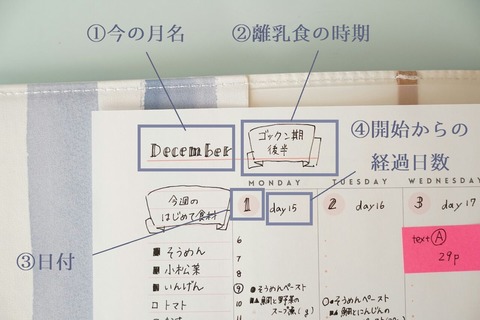 ①今の月名
②離乳食の時期
December
ゴックン期
後半
④開始からの
経過日数
MONDAY
TUESDAY
WEDNESDAY
今週の
はじめて食材
1
day 15
2
day 16
3
day 17
③日付
text Ⓐ
29p
そうめん
小松菜
いんげん
トマト
6
7
8
9
10
そうめんペースト
鯛と野菜の
スープ煮(g)
そうめんペースト
鯛とにんじんの